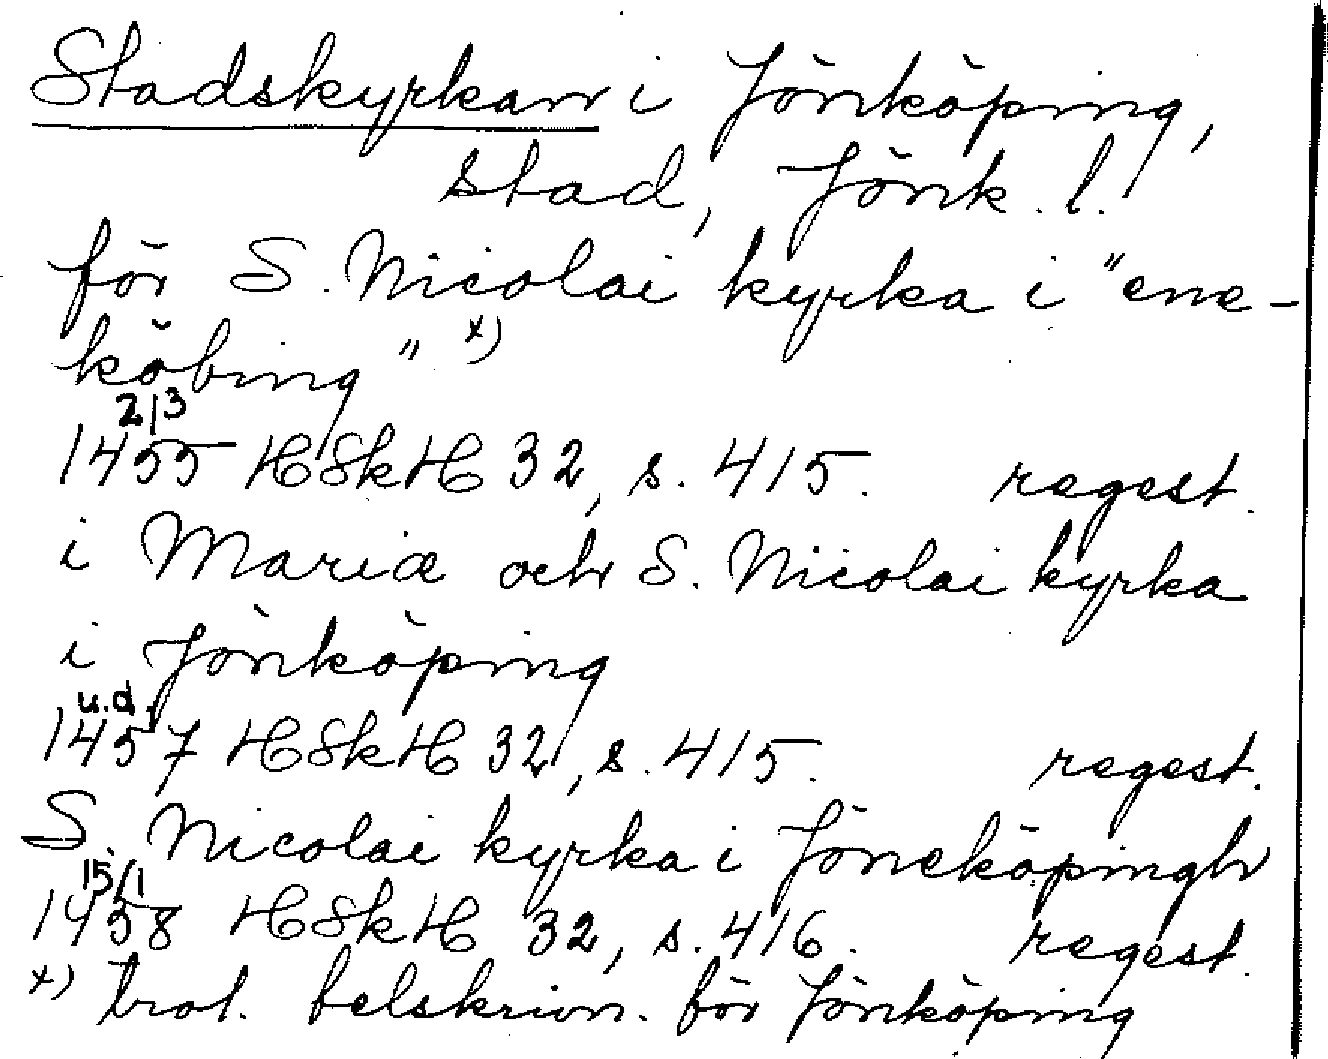 Stadskyrkan i Jönköping,
stad, Jönk. l.
för S. Nicolai kyrka i "ene-
köbing" x)
2/3
1455 HSkH 32, s. 415. regest.
i Mariæ och S. Nicolai kyrka
i Jönköping
u.d.
1457 HSkH 32, s. 415. regest.
S. Nicolai kyrka i Jöneköpingh
15/1
1458 HSkH 32, s. 416. regest.
x) trol. felskrivn. för Jönköping